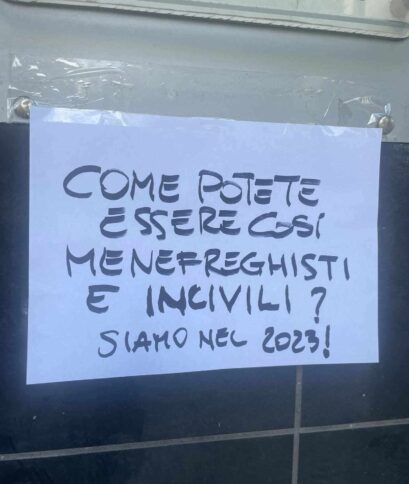 COME POTETE
ESSERE COSÍ
MENEFREGHISTI
E INCIVILI?
SIAMO NEL 2023!